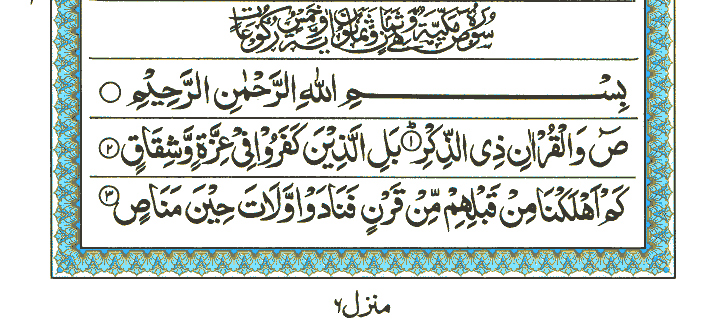 سُوْرَةُ صٓ مَكِّيَّةٌ وَّهِيَ ثَمَانٌ وَّثَمَانُوْنَ اٰيَةً وَّخَمْسُ رُكُوْعَاتٍ
بِسْمِ اللّٰهِ الرَّحْمٰنِ الرَّحِيْمِ ○
صٓ وَالْقُرْاٰنِ ذِی الذِّكْرِ ؕ۝۱ بَلِ الَّذِيْنَ كَفَرُوْا فِیْ عِزَّةٍ وَّشِقَاقٍ ۝۲
كَمْ اَهْلَكْنَا مِنْ قَبْلِهِمْ مِّنْ قَرْنٍ فَنَادَوْا وَّلَاتَ حِيْنَ مَنَاصٍ ۝۳
منزل ۶